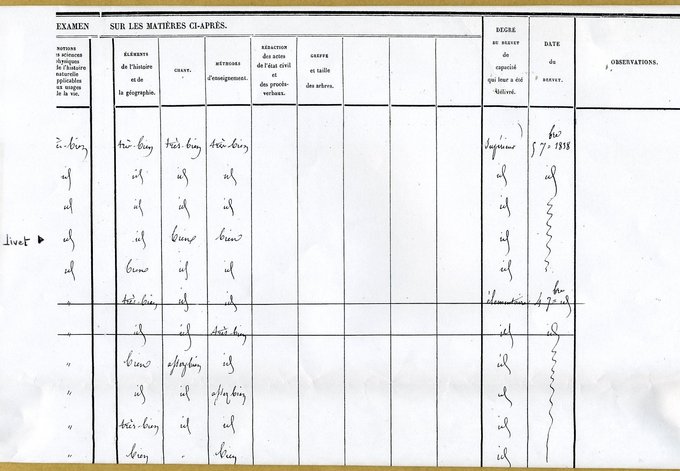 EXAMEN SUR LES MATIÈRES CI-APRÈS.
NOTIONS
sciences
physiques
de l'histoire
naturelle
applicables
aux usages
de la vie.
ÉLÉMENTS
de l'histoire
et de
la géographie.
CHANT.
MÉTHODES
d'enseignement.
RÉDACTION
des actes
de l'état civil
et des
procès-
verbaux.
GREFFE
et taille
des arbres.
DEGRÉ
DU BREVET
de
capacité
qui leur a été
délivré.
DATE
du
BREVET.
OBSERVATIONS.
très-bien très-bien très-bien très-bien Supérieur 5 7bre 1838
id id id id id id
id id id id id
Livet id id bien bien id
id bien id id id
" très-bien id id élémentaire 4 7bre id
" id id très-bien id id
" bien assez bien id id
" id id assez bien id
" très-bien id id id
" bien " bien id